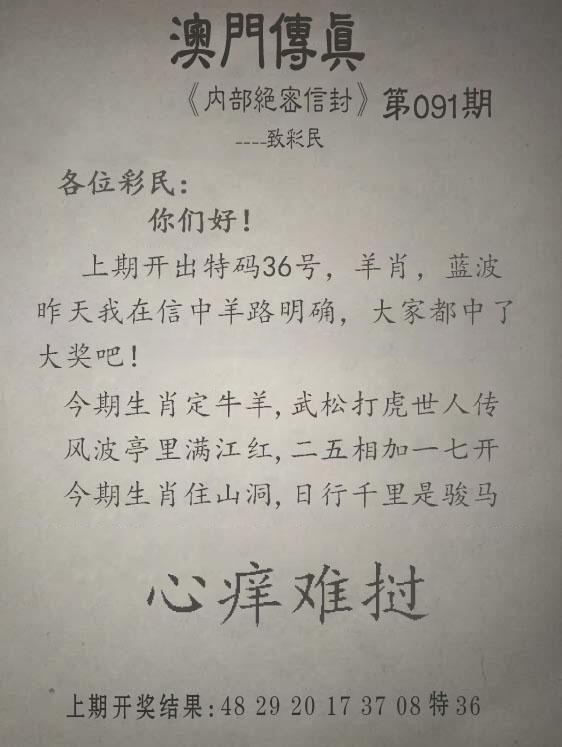 澳門傳眞
《内部絕密信封》第091期
----致彩民
各位彩民：
你们好！
上期开出特码36号，羊肖，蓝波
昨天我在信中羊路明确，大家都中了
大奖吧！
今期生肖定牛羊,武松打虎世人传
风波亭里满江红,二五相加一七开
今期生肖住山洞,日行千里是骏马
心痒难挝
上期开奖结果:48 29 20 17 37 08 特 36